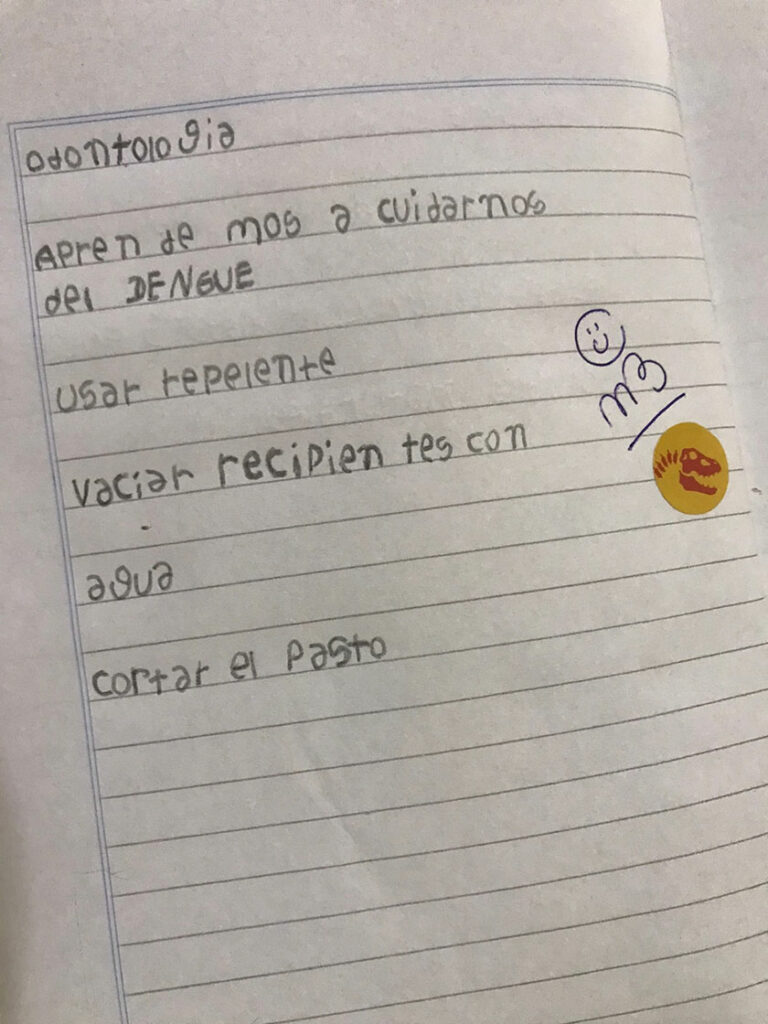 odontologia
Apren de mos a cuidarnos
del DENGUE
usar repelente
vaciar recipien tes con
agua
cortar el pasto